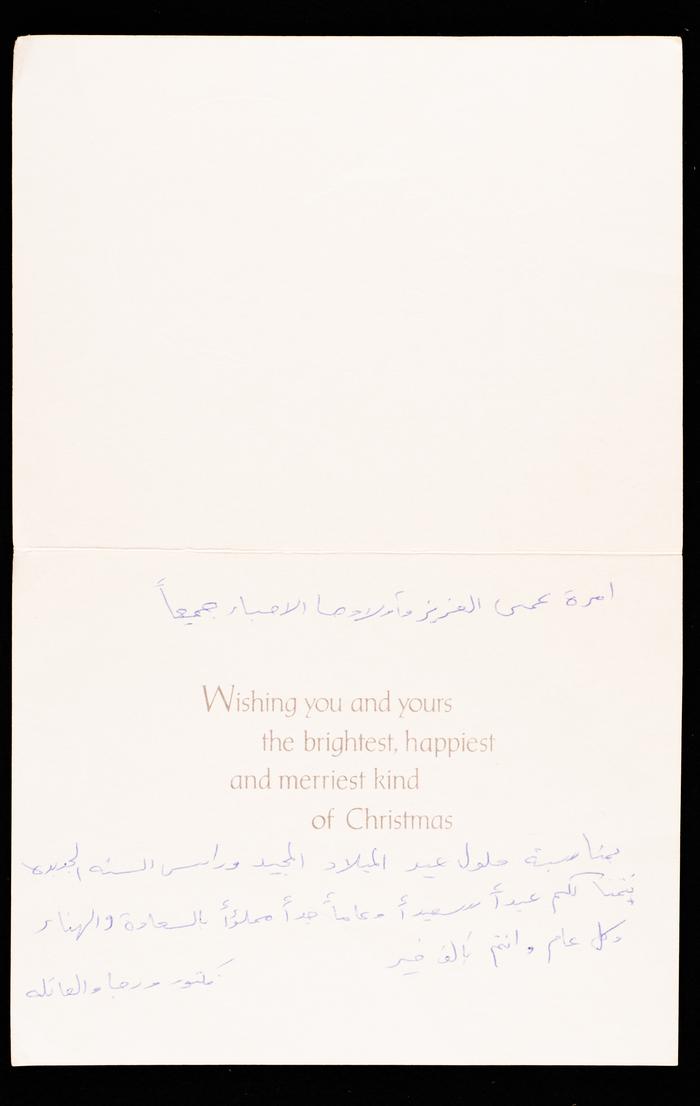 امرة عمي العزيز وأولادها الاحباء جميعاً
Wishing you and yours
the brightest, happiest
and merriest kind
of Christmas
بمناسبة حلول عيد الميلاد المجيد وراس السنه الجديده
نتمنا لكم عيداً سعيداً وعاماً جداً مملؤاً بالسعادة والهناء
وكل عام وانتم بألف خير
ورجا والعائله